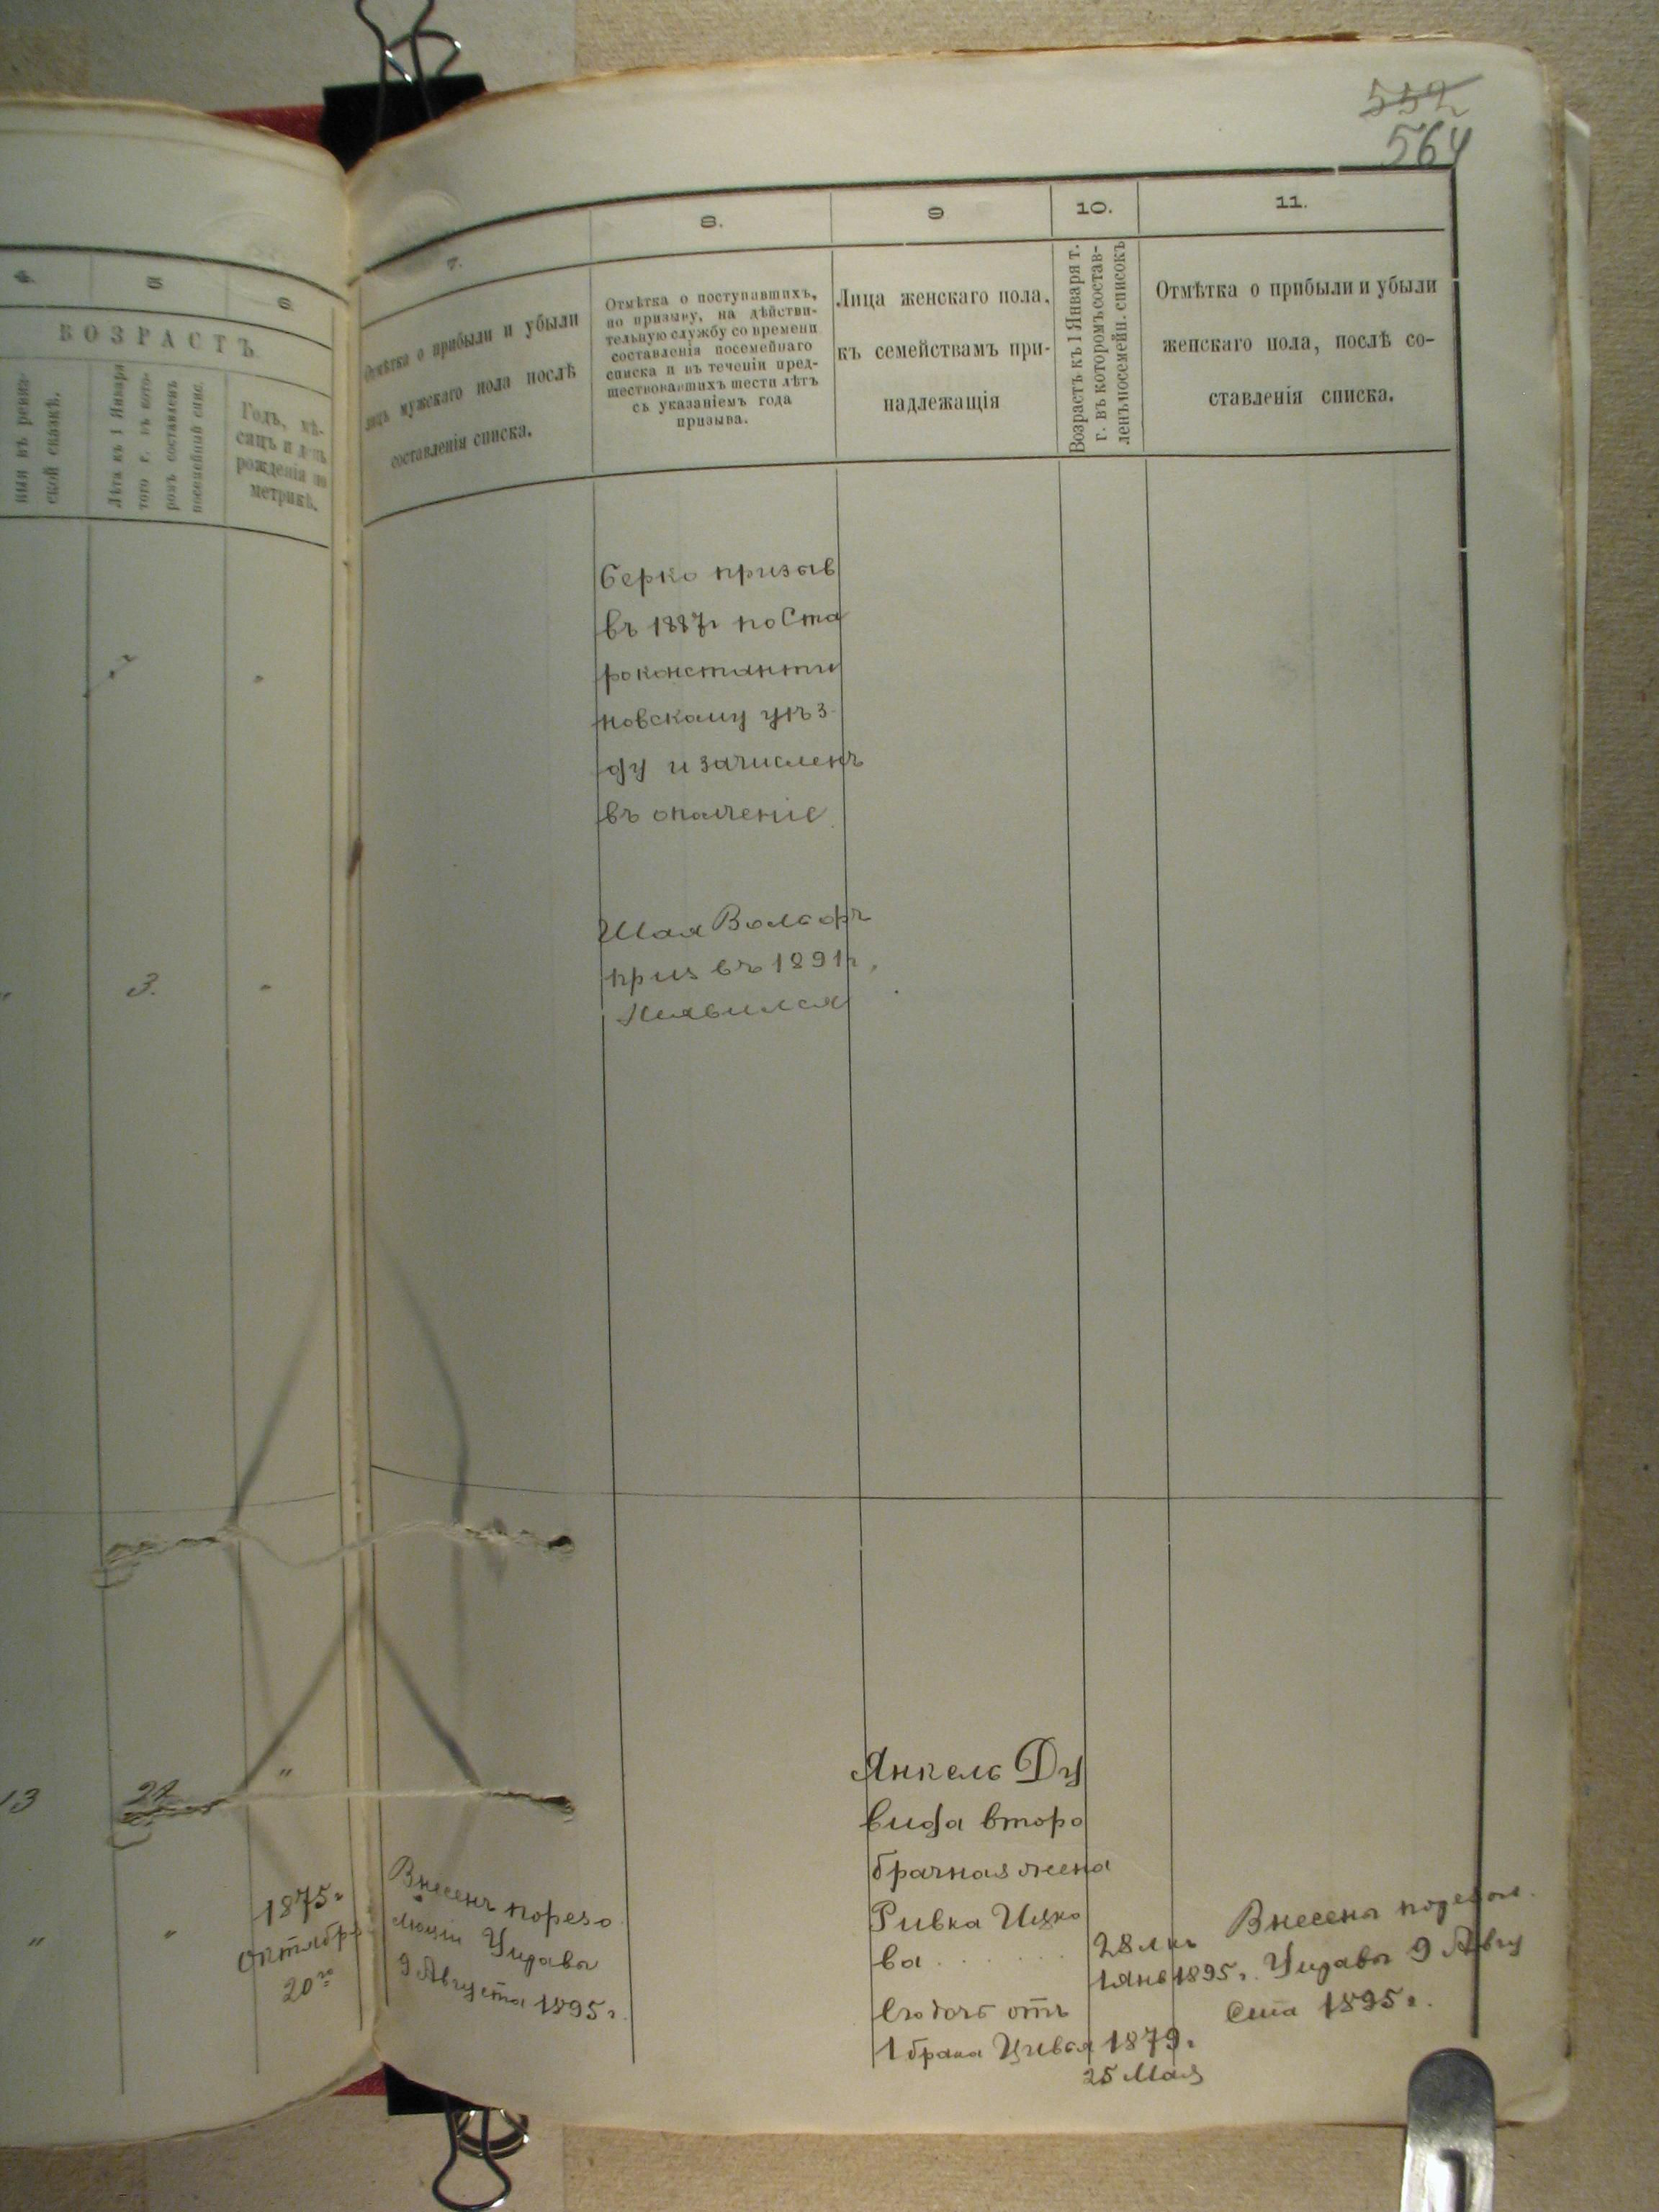 552
564
4. 5 6
ВОЗРАСТЪ
ской сказкѣ.
Лѣта къ 1 Января
того г. въ кото-
ромъ составленъ
посемейный спис.
Годъ, мѣ-
сяцъ и день
рожденія по
метрикѣ.
3. "
13 21 "
" "
1875 г
Октября
20го
7. 8. 9 10. 11.
Отмѣтка о прибыли и убыли
лицъ мужскаго пола послѣ
составленія списка.
Отмѣтка о поступавшихъ,
по призыву, на дѣйстви-
тельную службу со времени
составленія посемейнаго
списка и въ теченіи пред-
шествовавшихъ шести лѣтъ
съ указаніемъ года
призыва.
Лица женскаго пола,
къ семействамъ при-
надлежащія
Возрастъ къ 1 Января т.
г. въ которомъ состав-
ленъ посемейн. списокъ
Отмѣтка о прибыли и убыли
женскаго пола, послѣ со-
ставленія списка.
Берко призыв
въ 1887г по Ста
роконстанти
новскому уѣз
ду и зачисленъ
въ ополченіе
Шая Вольфъ
приз въ 1891г,
Неявился
Внесенъ порезо
люціи Управы
9 Августа 1895 г.
Янкель Ду
вида второ
брачная жена
Ривка Ицко
ва . . . .
Егодочь отъ
1 брака Цивья
28 лѣтъ
1 янв 1895 г.
1879 г
25 Мая
Внесены порезол.
Управы 9 Авгу
ста 1895 г.